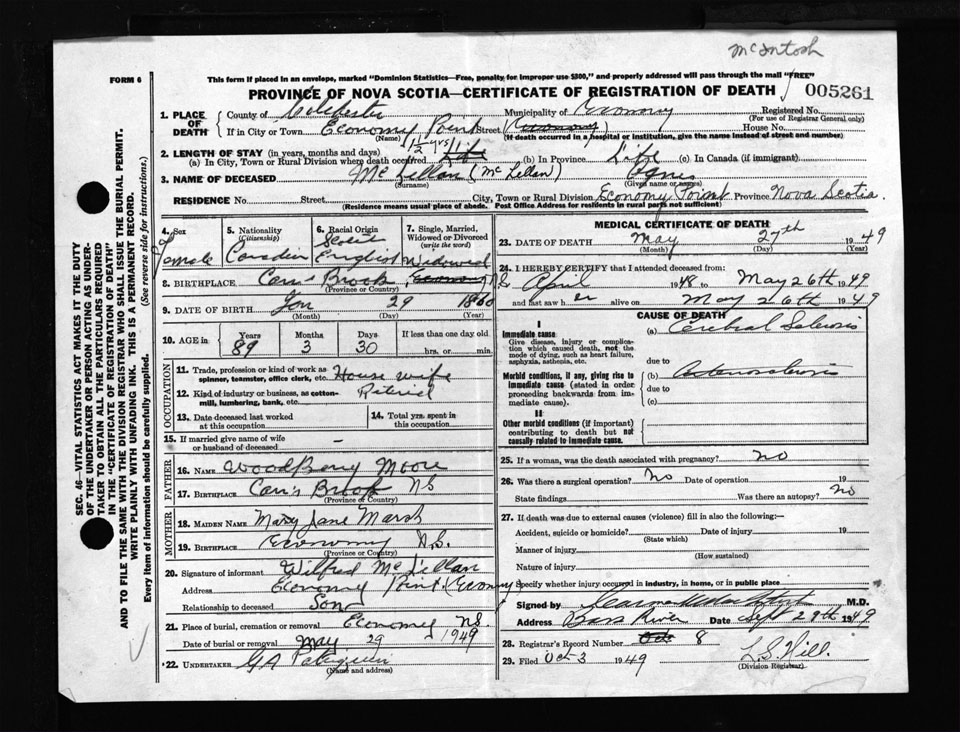 McIntosh
FORM 6
This form if placed in an envelope, marked "Dominion Statistics—Free, penalty for improper use $300," and properly addressed will pass through the mail "FREE"
PROVINCE OF NOVA SCOTIA—CERTIFICATE OF REGISTRATION OF DEATH 005261
SEC. 46—VITAL STATISTICS ACT MAKES IT THE DUTY
OF THE UNDERTAKER OR PERSON ACTING AS UNDER-
TAKER TO OBTAIN ALL THE PARTICULARS REQUIRED
IN THE "CERTIFICATE OF REGISTRATION OF DEATH"
AND TO FILE THE SAME WITH THE DIVISION REGISTRAR WHO SHALL ISSUE THE BURIAL PERMIT.
WRITE PLAINLY WITH UNFADING INK. THIS IS A PERMANENT RECORD.
Every item of information should be carefully supplied. (See reverse side for instructions.)
1. PLACE OF DEATH
County of Colchester Municipality of Economy Registered No.
(For use of Registrar General only)
If in City or Town Economy Point Street (Economy) House No.
(Name) (If death occurred in a hospital or institution, give the name instead of street and number)
2. LENGTH OF STAY (in years, months and days)
(a) In City, Town or Rural Division where death occurred 1½ yrs Life (b) In Province Life (c) In Canada (if immigrant)
3. NAME OF DECEASED McLellan (McLellan) Agnes
(Surname) (Given name or names)
RESIDENCE No. Street City, Town or Rural Division Economy Point Province Nova Scotia
(Residence means usual place of abode. Post Office Address for residents in rural parts not sufficient)
4. Sex 5. Nationality (Citizenship) 6. Racial Origin 7. Single, Married, Widowed or Divorced (write the word)
Female Canadian Scotch English Widowed
8. BIRTHPLACE Carr's Brook Economy N.S.
(Province or Country)
9. DATE OF BIRTH Jan 29 1860
(Month) (Day) (Year)
10. AGE in Years Months Days If less than one day old
89 3 30 hrs. or min.
OCCUPATION
11. Trade, profession or kind of work as spinner, teamster, office clerk, etc. House wife
12. Kind of industry or business, as cotton-mill, lumbering, bank, etc. Retired
13. Date deceased last worked at this occupation
14. Total yrs. spent in this occupation
15. If married give name of wife or husband of deceased –
FATHER
16. NAME Woodbery Moore
17. BIRTHPLACE Carr's Brook NS
(Province or Country)
MOTHER
18. MAIDEN NAME Mary Jane Marsh
19. BIRTHPLACE Economy N.S.
(Province or Country)
20. Signature of informant Wilfred McLellan
Address Economy Point (Economy
Relationship to deceased Son
21. Place of burial, cremation or removal Economy NS.
Date of burial or removal May 29 1949
22. UNDERTAKER GA
(Name and address)
MEDICAL CERTIFICATE OF DEATH
23. DATE OF DEATH May 27th 1949
(Month) (Day) (Year)
24. I HEREBY CERTIFY that I attended deceased from:
April 1948 to May 26th 1949
and last saw her alive on May 26th 1949
CAUSE OF DEATH
I
Immediate cause (a) Cerebral Sclerosis
Give disease, injury or complication which caused death, not the mode of dying, such as heart failure, asphyxia, asthenia, etc. due to
Morbid conditions, if any, giving rise to immediate cause (stated in order proceeding backwards from immediate cause). (b) Arteriosclerosis
due to
(c)
II
Other morbid conditions (if important) contributing to death but not causally related to immediate cause.
25. If a woman, was the death associated with pregnancy? No
26. Was there a surgical operation? No Date of operation 19
State findings Was there an autopsy? No
27. If death was due to external causes (violence) fill in also the following:—
Accident, suicide or homicide? Date of injury 19
(State which)
Manner of injury
(How sustained)
Nature of injury
Specify whether injury occurred in industry, in home, or in public place
Signed by M.D.
Address Bass River Date Sept 29th 1949
28. Registrar's Record Number Oct 8
29. Filed Oct 3 1949 L.S. Hill.
(Division Registrar)